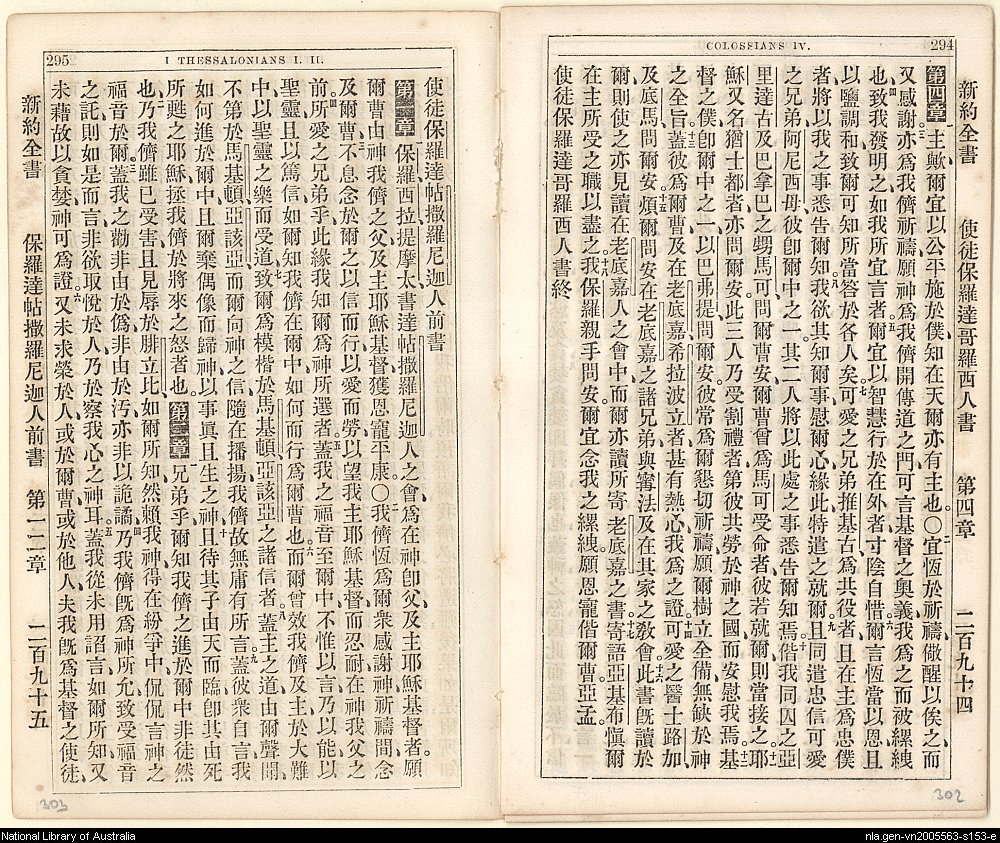 COLOSSIANS IV. 294
新約全書 使徒保羅達哥羅西人書 第四章 二百九十四
第四章 主歟爾宜以公平施於僕知在天爾亦有主也〇宜恆於祈禱儆醒以俟之而
又感謝亦爲我儕祈禱願神爲我儕開傳道之門可言基督之奧義我爲之而被縲絏
也致我發明之如我所宜言者爾宜以智慧行於在外者寸陰自惜爾言恆當以恩且
以鹽調和致爾可知所當答於各人矣可愛之兄弟推基古爲共役者且在主爲忠僕
者將以我之事悉告爾知我欲其知爾事慰爾心緣此特遣之就爾且同遣忠信可愛
之兄弟阿尼西母彼卽爾中之一其二人將以此處之事悉告爾知焉偕我同囚之亞
里達古及巴拿巴之甥馬可問爾曹安爾曹曾爲馬可受命者彼若就爾則當接之耶
穌又名猶士都者亦問爾安此三人乃受割禮者第彼共勞於神之國而安慰我焉基
督之僕卽爾中之一以巴弗提問爾安彼常爲爾懇切祈禱願爾樹立全備無缺於神
之全旨蓋彼爲爾曹及在老底嘉希拉波立者甚有熱心我爲之證可愛之醫士路加
及底馬問爾安煩爾問安在老底嘉之諸兄弟與寗法及在其家之敎會此書旣讀於
爾則使之亦見讀在老底嘉人之會中而爾亦讀所寄老底嘉之書寄語亞基布愼爾
在主所受之職以盡之我保羅親手問安爾宜念我之縲絏願恩寵偕爾曹亞孟
使徒保羅達哥羅西人書終
302
295 I THESSALONIANS I. II.
使徒保羅達帖撒羅尼迦人前書
第一章 保羅西拉提摩太書達帖撒羅尼迦人之會爲在神卽父及主耶穌基督者願
爾曹由神我儕之父及主耶穌基督獲恩寵平康〇我儕恆爲爾衆感謝神祈禱間念
及爾曹不息念於爾之以信而行以愛而勞以望我主耶穌基督而忍耐在神我父之
前所愛之兄弟乎此緣我知爾爲神所選者蓋我之福音至爾中不惟以言乃以能以
聖靈且以篤信如爾知我儕在爾中如何而行爲爾曹也而爾曾效我儕及主於大難
中以聖靈之樂而受道致爾爲模楷於馬基頓亞該亞之諸信者蓋主之道由爾聲聞
不第於馬基頓亞該亞而爾向神之信隨在播揚我儕故無庸有所言蓋彼衆自言我
如何進於爾中且爾棄偶像而歸神以事眞且生之神且待其子由天而臨卽其由死
所甦之耶穌拯我儕於將來之怒者也 第二章 兄弟乎爾知我儕之進於爾中非徒然
也乃我儕雖已受害且見辱於腓立比如爾所知然賴我神得在紛爭中侃侃言神之
福音於爾蓋我之勸非由於僞非由於汚亦非以詭譎乃我儕旣爲神所允致受福音
之託則如是而言非欲取悅於人乃於察我心之神耳蓋我從未用諂言如爾所知又
未藉故以貪婪神可爲證又未求榮於人或於爾曹或於他人夫我旣爲基督之使徒
新約全書 保羅達帖撒羅尼迦人前書 第一二章 二百九十五
303
National Library of Australia
nla.gen-vn2005563-s153-e